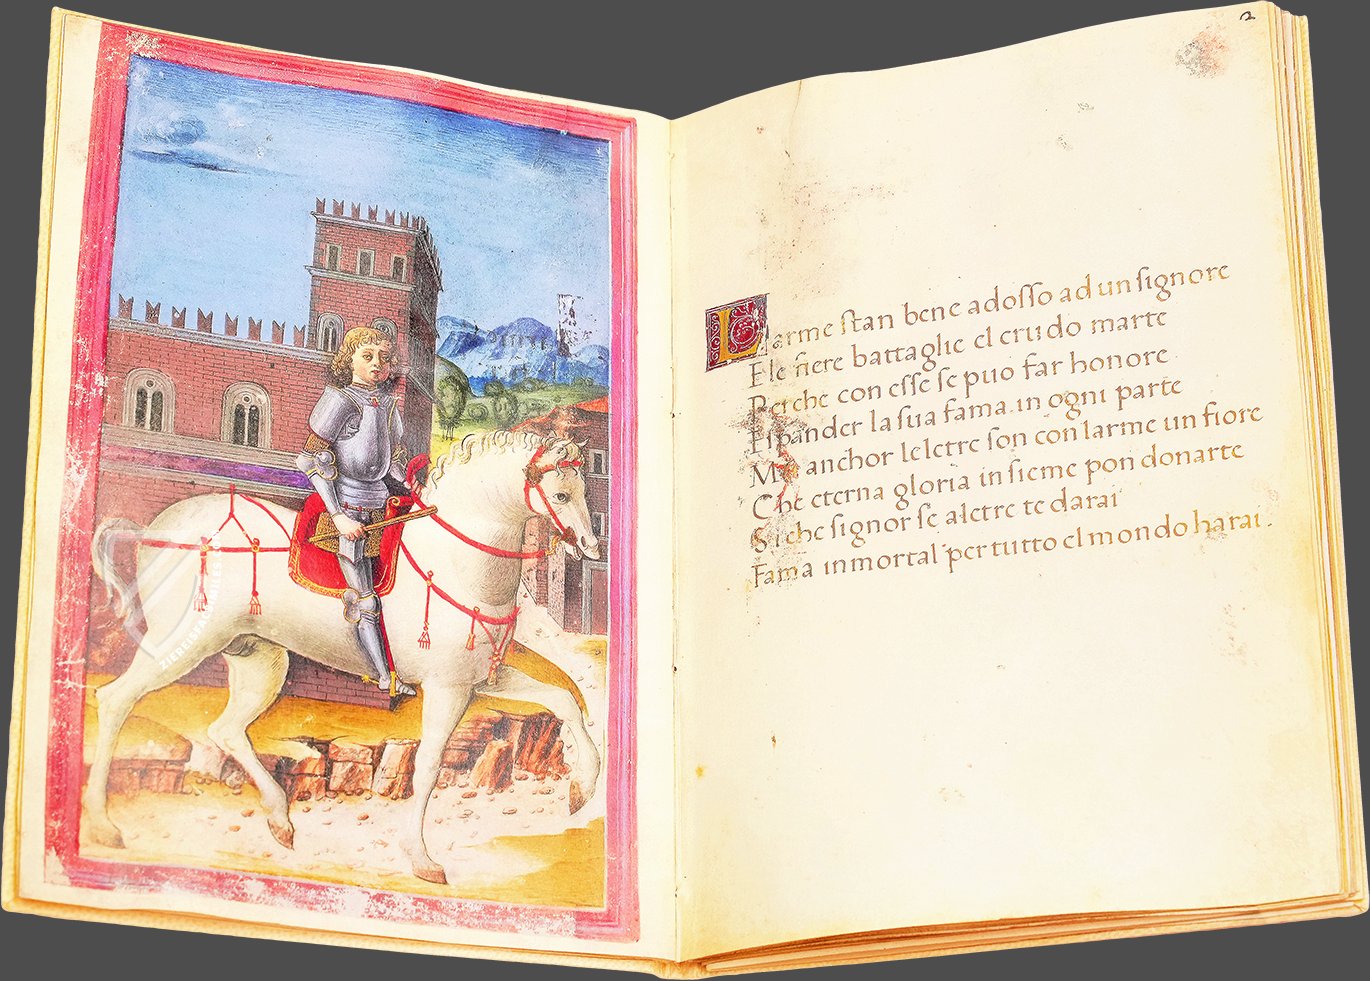 2
Larme ſtan bene adoſſo ad un ſignore
E le fiere battaglie el crudo marte
Perche con eſſe ſe puo far honore
Eſpander la ſua fama in ogni parte
Ma anchor le letre ſon con larme un fiore
Che eterna gloria inſieme pon donarte
Siche ſignor ſe a letre te darai
Fama inmortal per tutto el mondo harai.
ZIEREIS FACSIMILES